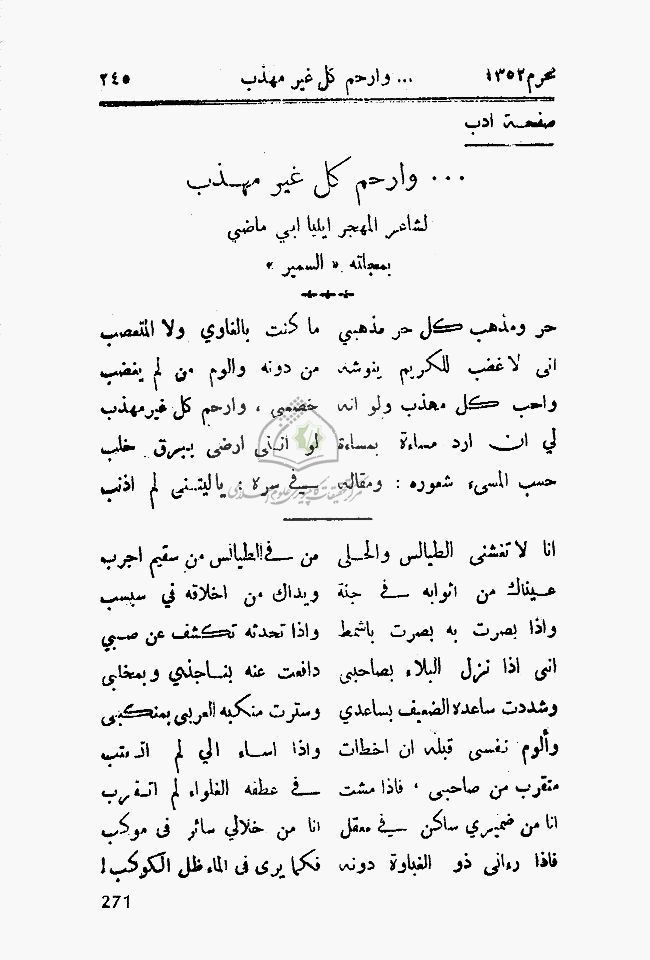 محرم ١٣٥٢ ... وارحم كل غير مهذب ٢٤٥
صفحة ادب
... وارحم كل غير مهذب
لشاعر المهجر ايليا ابي ماضي
بمجلته « السمير »
حر ومذهب كل حر مذهبي ما كنت بالغاوي ولا المتعصب
انى لاغضب للكريم ينوشه من دونه والوم من لم يغضب
واحب كل مهذب ولو انه خصمى ، وارحم كل غير مهذب
لي ان ارد مساءة بمساءة لو اننى ارضى ببرق خلب
حسب المسىء شعوره : ومقاله في سره : ياليتنى لم اذنب
انا لا تغشنى الطيالس والحلى من في الطيالس من سقيم اجرب
عيناك من اثوابه في جنة ويداك من اخلاقه في سبسب
واذا بصرت به بصرت باشمط واذا تحدثه تكشف عن صبي
انى اذا نزل البلاء بصاحبى دافعت عنه بناجذي وبمخلبى
وشددت ساعده الضعيف بساعدي وسترت منكبه العربى بمنكبى
وألوم نفسى قبله ان اخطات واذا اساء الي لم اتعتب
متقرب من صاحبى ، فاذا مشت في عطفه الغلواء لم اتقرب
انا من ضميري ساكن في معقل انا من خلالي سائر فى موكب
فاذا رءانى ذو الغباوة دونه فكما يرى فى الماء ظل الكوكب !
271